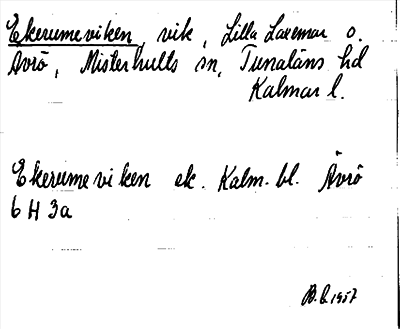 Ekerumeviken, vik, Lilla Laxemar o.
Ävrö, Misterhults sn, Tunaläns hd
Kalmar l.
Ekerumeviken ek. Kalm. bl. Ävrö
6 H 3a
B.E. 1957